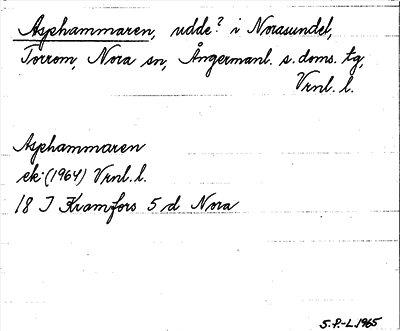 Asphammaren, udde? i Norasundet,
Torrom, Nora sn, Ångermanl. s. doms. tg,
Vrnl. l.
Asphammaren
ek. (1964) Vrnl. l.
18 I Kramfors 5 d Nora
S.P.-L. 1965